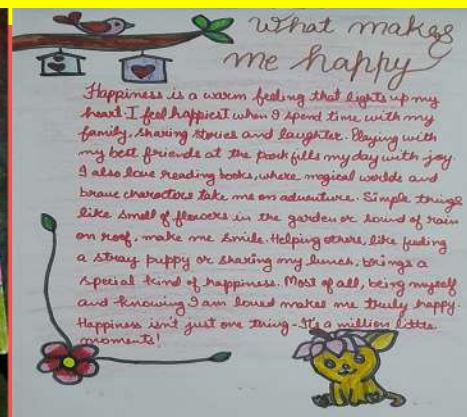 What makes
me happy
Happiness is a warm feeling that lights up my
heart. I feel happiest when I spend time with my
family, sharing stories and laughter. Playing with
my best friends at the park fills my day with joy.
I also love reading books, where, magical worlds and
brave characters take me on adventure. Simple things
like smell of flowers in the garden or sound of rain
on roof, make me smile. Helping others, like feeding
a stray puppy or sharing my lunch, brings a
special kind of happiness. Most of all, being myself
and knowing I am loved makes me truly happy.
Happiness isn't just one thing - It's a million little
moments!